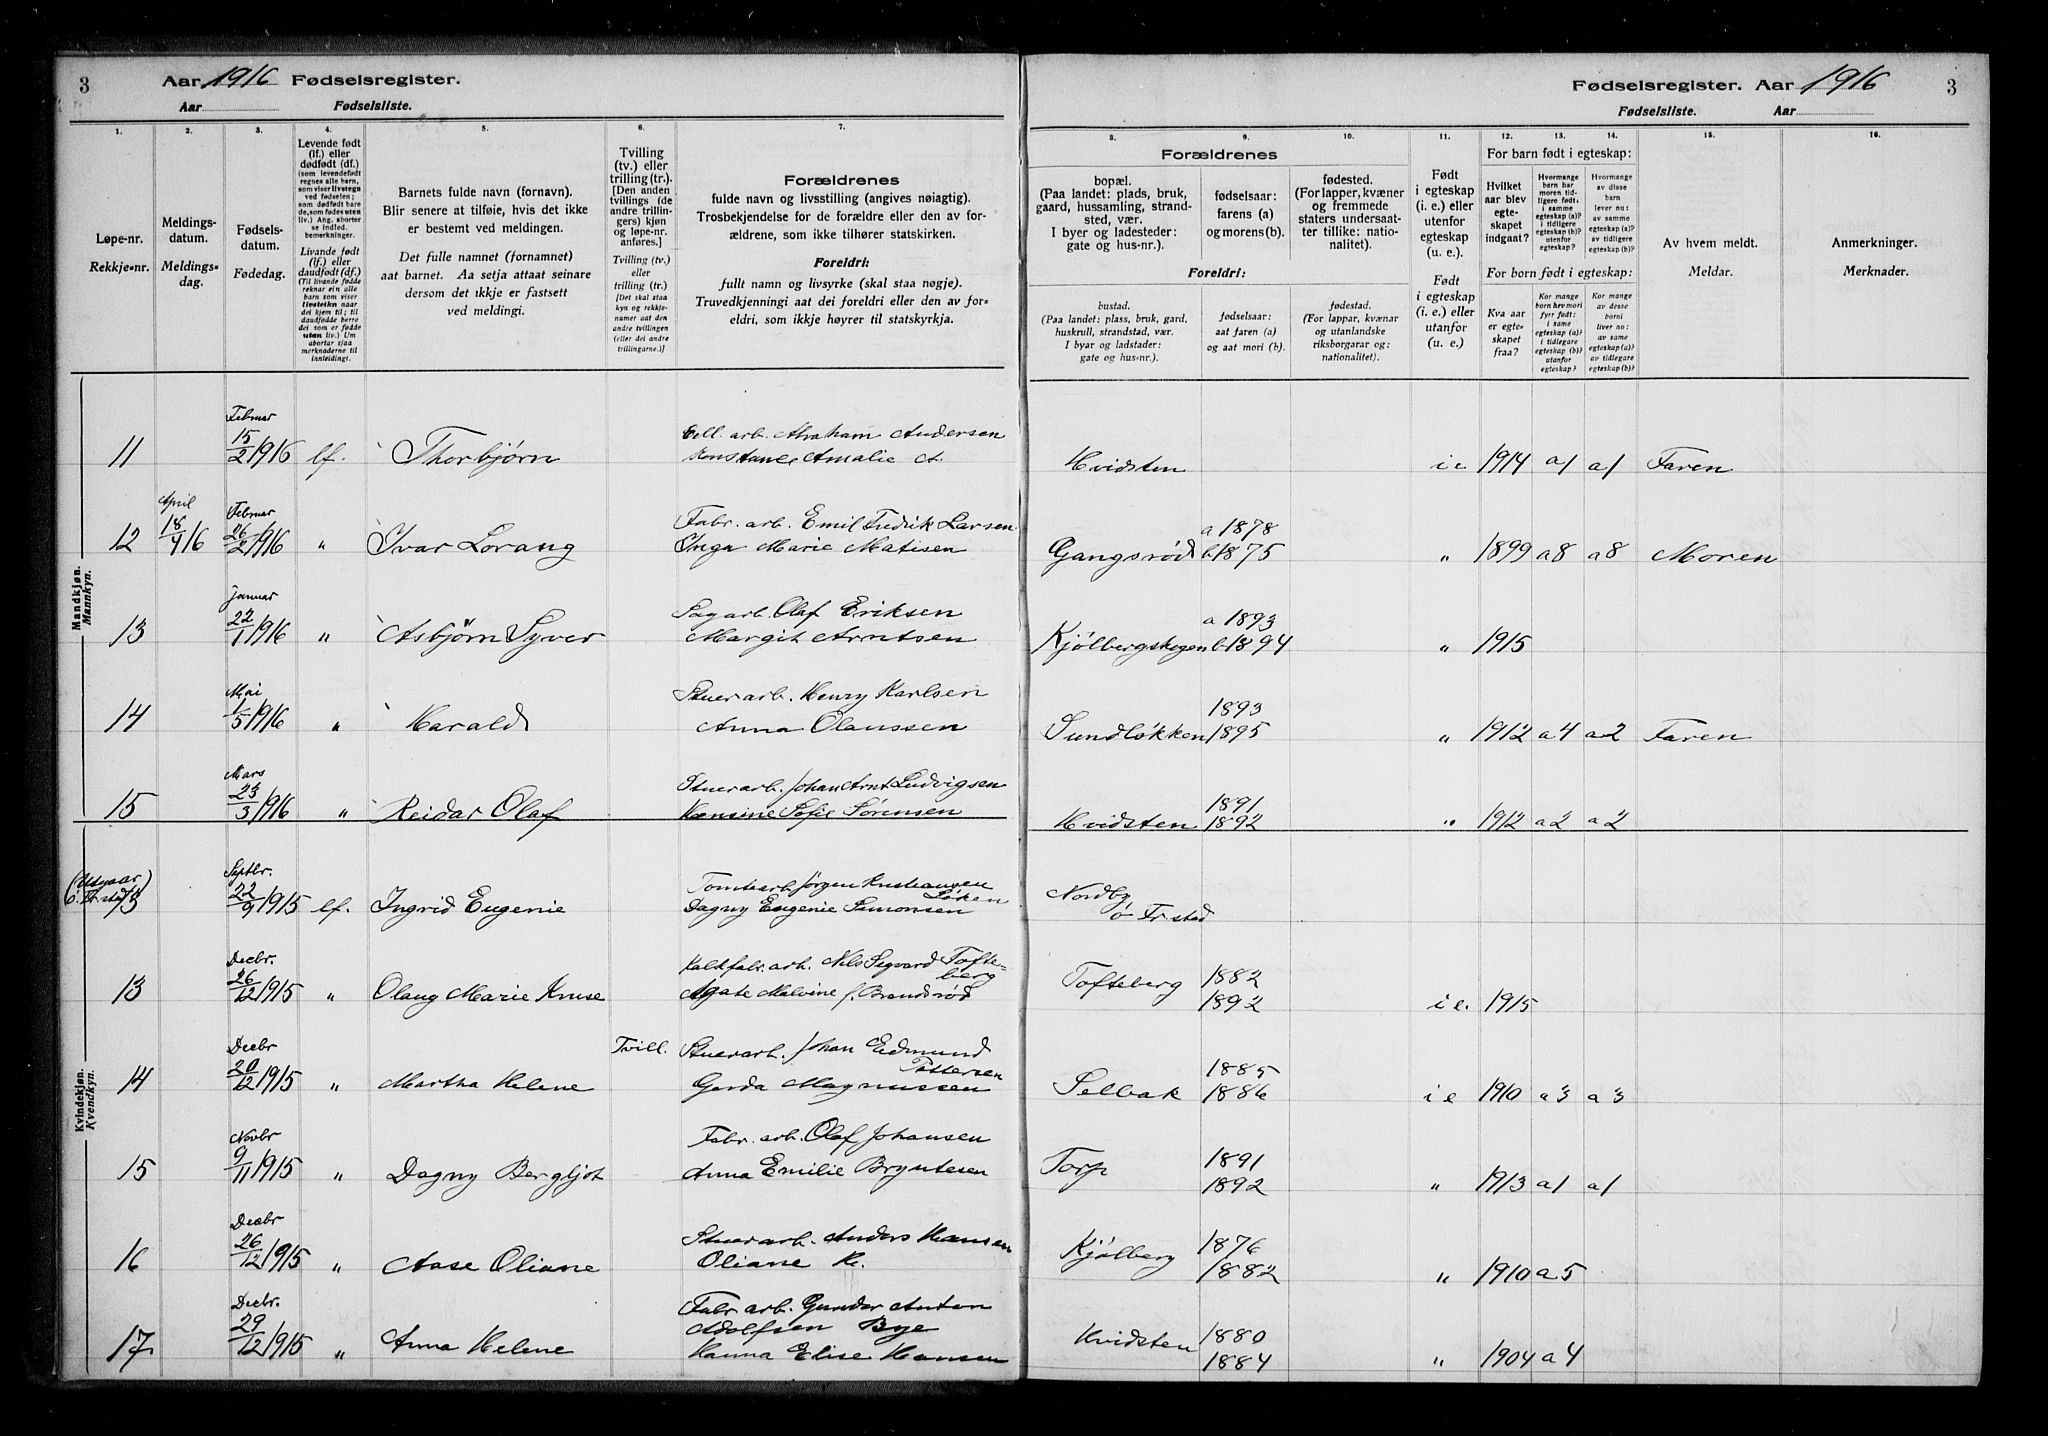 3 Aar 1916 Fødselsregister.
Aar Fødselsliste.
Fødselsregister. Aar 1916 3
Fødselsliste. Aar
1. 2. 3. 4. 5. 6. 7.
8. 9. 10. 11. 12. 13. 14. 15. 16.
Løpe-nr.
Rekkje-nr.
Meldings-
datum.
Meldings-
dag.
Fødsels-
datum.
Fødedag.
Levende født
(lf.) eller
dødfødt (df.)
(som levendefødt
regnes alle barn,
som viser livstegn
ved fødselen;
som dødfødt bare
de, som fødes uten
liv.) Ang. aborter
se indled.
bemerkninger.
Livande født
(lf.) eller
daudfødt (df.)
(Til livande fødde
reknar ein alle
barn som viser
livsteikn naar
dei kjem til; til
daudfødde berre
dei som er fødde
utan liv.) Um
abortar sjaa
merknaderne til
innleidingi.
Barnets fulde navn (fornavn).
Blir senere at tilføie, hvis det ikke
er bestemt ved meldingen.
Det fulle namnet (fornamnet)
aat barnet. Aa setja attaat seinare
dersom det ikkje er fastsett
ved meldingi.
Tvilling
(tv.) eller
trilling (tr.).
[Den anden
tvillings (de
andre trillin-
gers) kjøn
og løpe-nr.
anføres.]
Tvilling (tv.)
eller
trilling (tr.)
[Det skal staa
kyn og rekkje-
numer aat den
andre tvillingen
(eller dei andre
trillingarne.)]
Forældrenes
fulde navn og livsstilling (angives nøiagtig).
Trosbekjendelse for de forældre eller den av for-
ældrene, som ikke tilhører statskirken.
Foreldri:
fullt namn og livsyrke (skal staa nøgje).
Truvedkjenningi aat dei foreldri eller den av for-
eldri, som ikkje høyrer til statskyrkja.
Forældrenes
bopæl.
(Paa landet: plads, bruk,
gaard, hussamling, strand-
sted, vær.
I byer og ladesteder:
gate og hus-nr.).
fødselsaar:
farens (a)
og morens (b).
fødested.
(For lapper, kvæner
og fremmede
staters undersaat-
ter tillike: natio-
nalitet).
Foreldri:
bustad.
(Paa landet: plass, bruk, gard,
huskrull, strandstad, vær.
I byar og ladstader:
gate og hus-nr.).
fødselsaar:
aat faren (a)
og aat mori (b).
fødestad.
(For lappar, kvænar
og utanlandske
riksborgarar og:
nationalitet).
Født
i egteskap
(i. e.) eller
utenfor
egteskap
(u. e.).
Født
i egteskap
(i. e.) eller
utanfor
egteskap
(u. e.)
For barn født i egteskap:
Hvilket
aar blev
egte-
skapet
indgaat?
Hvormange
barn har
moren tid-
ligere født:
i samme
egteskap (a)?
i tidligere
egteskap (b)?
utenfor
egteskap?
Hvormange
av disse
barn
lever nu:
av samme
egteskap (a)?
av tidligere
egteskap (b)?
For born født i egteskap:
Kva aar
er egte-
skapet
fraa?
Kor mange
born hev mori
fyrr født:
i same
egteskap (a)?
i tidlegare
egteskap (b)?
utanfor
egteskap?
Kor mange
av desse
borni
liver no:
av same
egteskap (a)?
av tidlegare
egteskap (b)?
Av hvem meldt.
Meldar.
Anmerkninger.
Merknader.
Mandkjøn.
Mannkyn.
Februar
11 15/2 1916 lf. Thorbjørn
Cell. arb. Abraham Andersen
Konstance Amalie A.
Hvidsten i e 1914 a1 a1 Faren
April Februar
12 18/4 16 26/2 1916 „ Ivar Lorang
Fabr. arb. Emil Fredrik Larsen
Inga Marie Matisen
Gangsrød a 1878
b 1875 „ 1899 a8 a8 Moren
Januar
13 22/1 1916 „ Asbjørn Syver
Sagarb. Olaf Eriksen
Margit Arntsen
Kjølbergskogen a 1893
b 1894 „ 1915
Mai
14 1/5 1916 „ Harald
Stuerarb. Henry Karlsen
Anna Olaussen
Sundløkken 1893
1895 „ 1912 a4 a2 Faren
Mars
15 23/3 1916 „ Reidar Olaf
Stuerarb. Johan Arnt Ludvigsen
Hansine Sofie Sørensen
Hvidsten 1891
1892 „ 1912 a2 a2
Kvindekjøn.
Kvendkyn.
(Utgaar
Septbr.
13 22/9 1915 lf. Ingrid Eugenie
Tomtearb. Jörgen Kristiansen
Löken
Dagny Eugenie Simonsen
Nordby
ö Frstad
Decbr.
13 26/12 1915 „ Olaug Marie Kruse
Kalkfabr. arb. Nils Segvard Tofte-
berg
Agate Malvine f. Brandsrød
Tofteberg 1882
1892 i e. 1915
Decbr
14 20/12 1915 „ Martha Helene Tvill.
Stuerarb. Johan Edmund
Pettersen
Gerda Magnussen
Selbak 1885
1886 i e 1910 a3 a3
Novbr
15 9/11 1915 „ Dagny Bergljot
Fabr. arb. Olaf Johansen
Anna Emilie Bryntesen
Torp 1891
1892 „ 1913 a1 a1
Decbr
16 26/12 1915 „ Aase Oliane
Stuerarb. Anders Hansen
Oliane H.
Kjølberg 1876
1882 „ 1910 a5
Decbr.
17 29/12 1915 „ Anna Helene
Fabr. arb. Gunder Anton
Adolfsen Bye
Hanna Elise Hansen
Hvidsten 1880
1884 „ 1904 a4